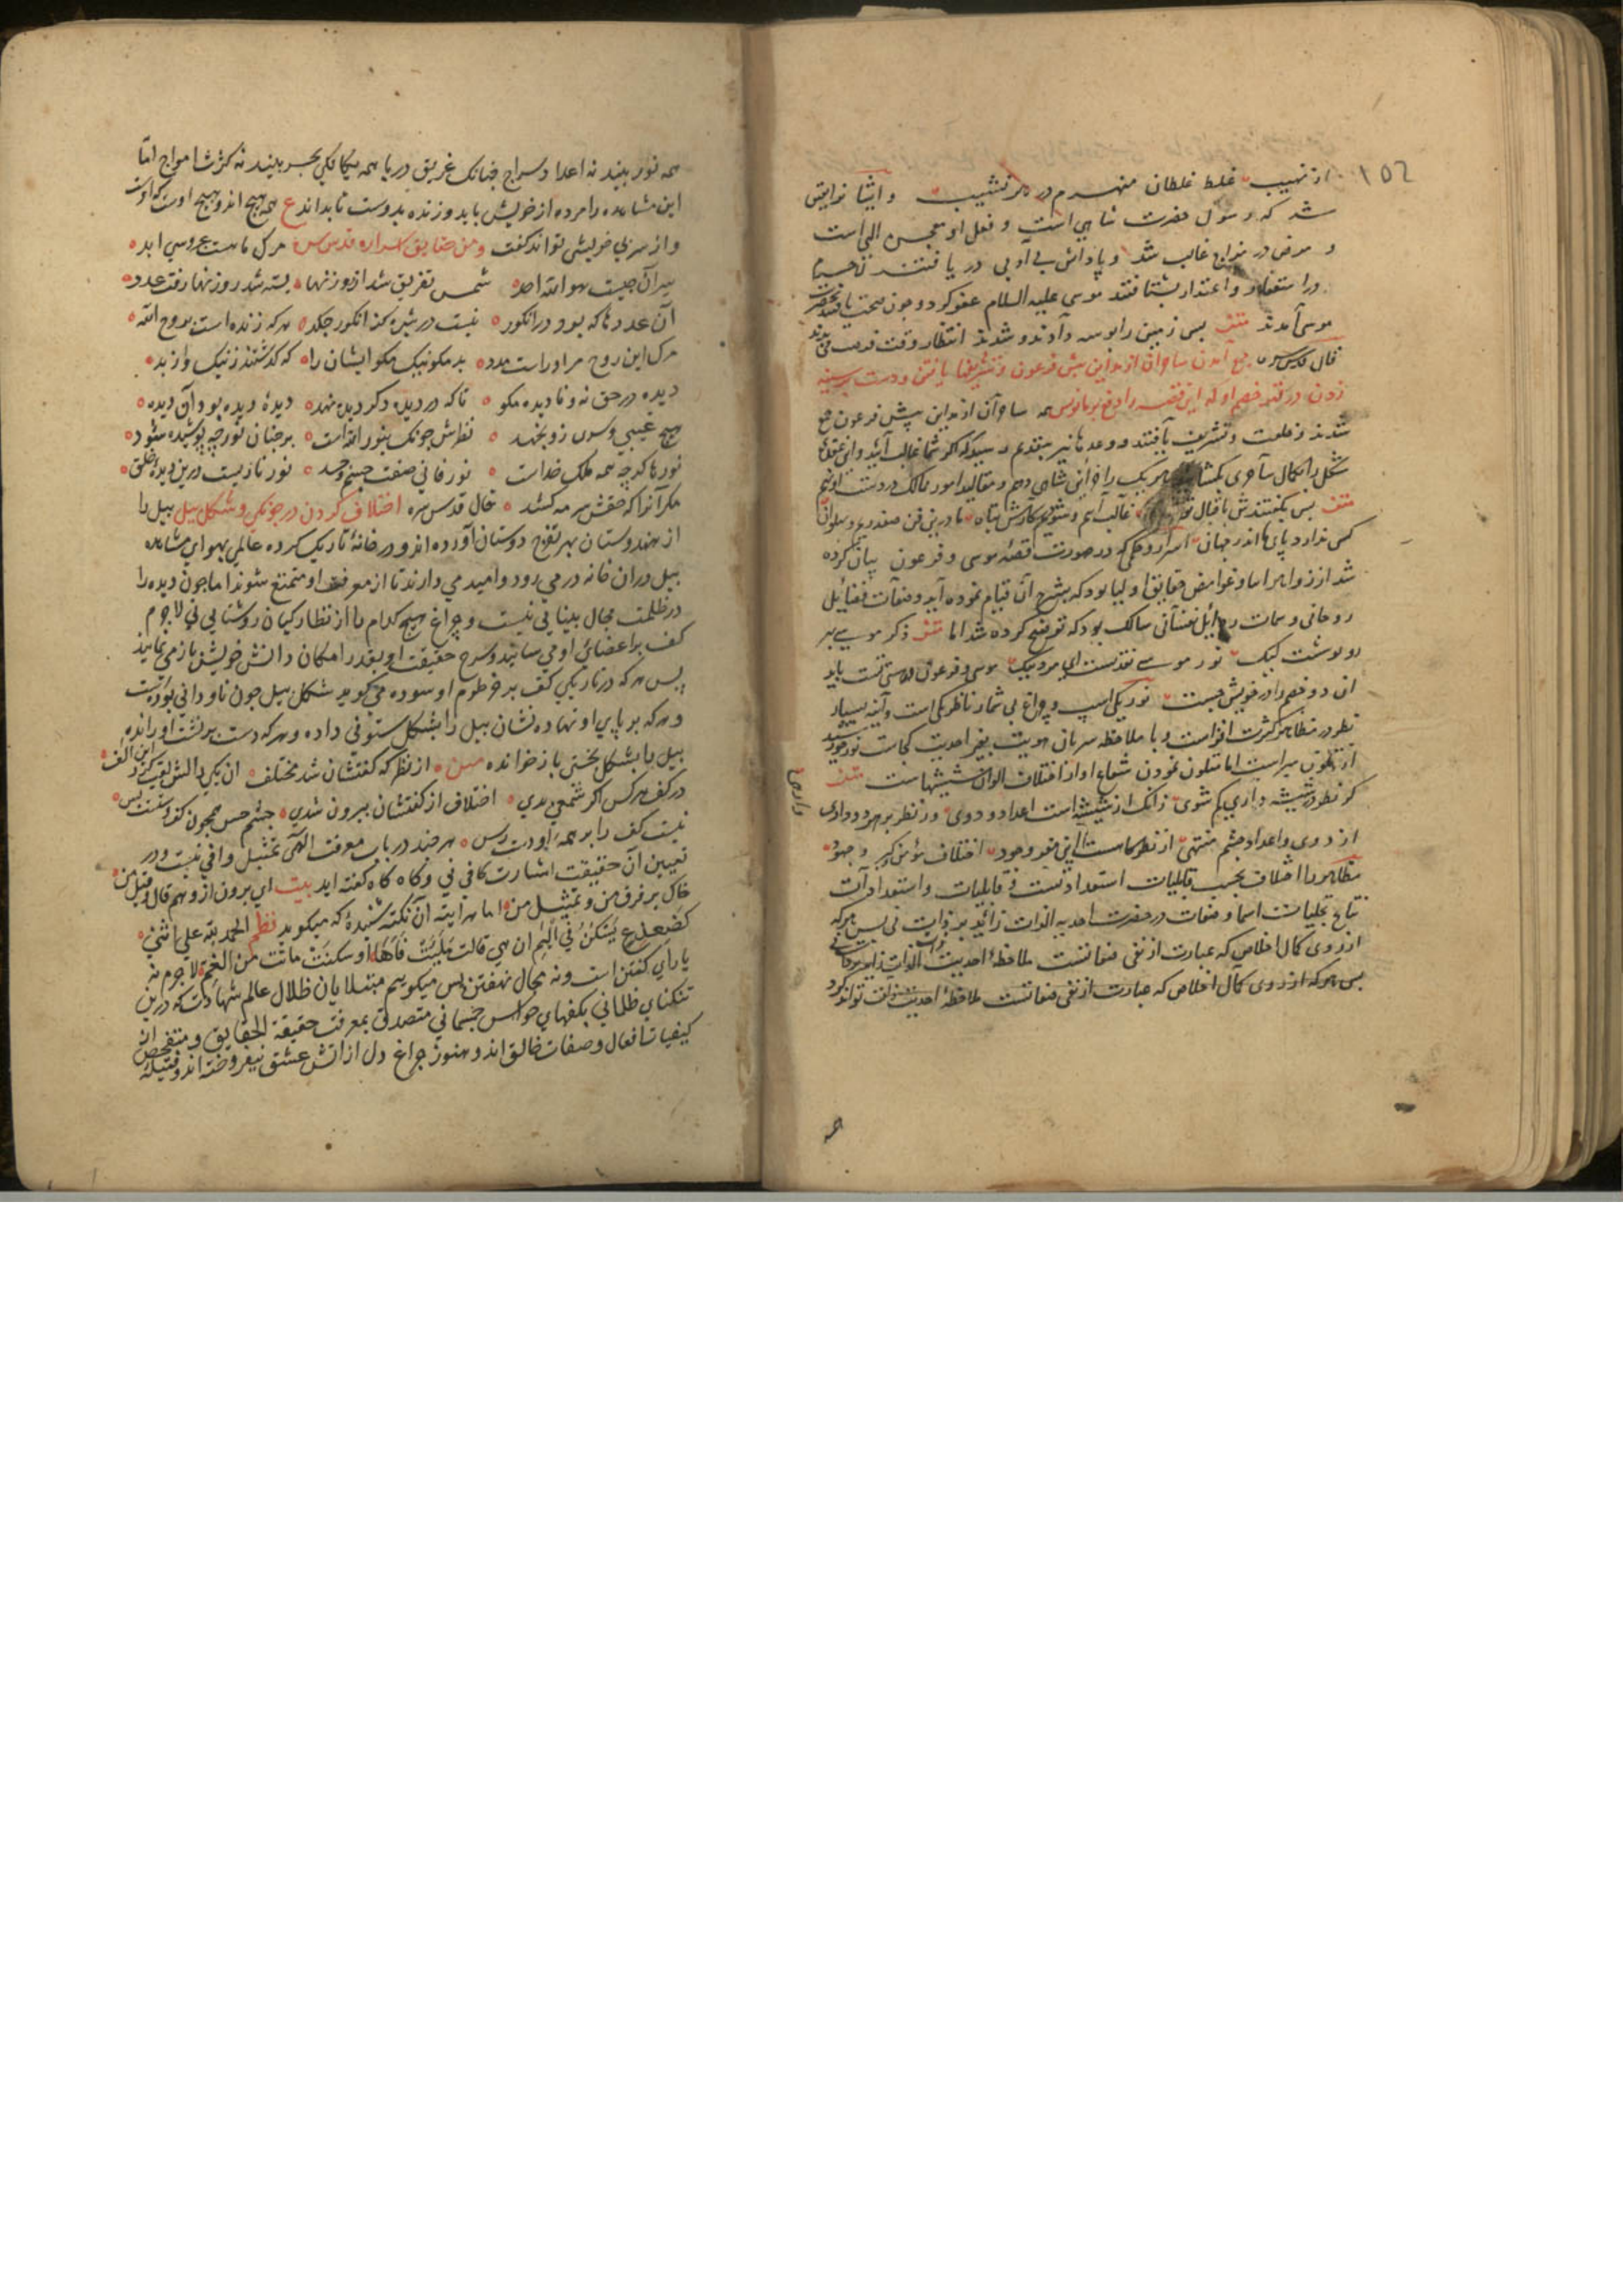 ١٥٢
از نهیب غلط غلطان منهزم در هر نشیب و ایشانرا یقین
شد که رسول حضرت شاهی است و فعل او تحسین الهی است
و مرض در مزاج غالب شد و پاداش بی ادبی دریافتند
در استغفار و اعتذار بشتافتند موسی علیه السلام عفو کرد و چون صحت یافتند بحضرت
موسی آمدند متن پس زمین را بوسه دادند و شدند انتظار وقت فرصت می بدند
قال قدس سره جمع آمدن ساحران از مداین پیش فرعون و تشریفها یافتن و دست بر سینه
زدن در قهر خصم او که این قصه را دفع بر ما نویس ساحران از مداین پیش فرعون جمع
شدند و خلعت و تشریف یافتند و وعدها نیز بتقدیم رسید که اگر شما غالب آئید و این عقدهٔ
شکل را بکمال ساحری بگشائید هر یک را خزاین شاهی دهم و مقالید امور ممالک در دست او نهم
متن پس بگفتندش باقبال تو غالب آییم و شود کارش تباه ما درین فن صفدریم و پهلوان
کس ندارد پای ما اندر جهان اسرار و حکم که در صورت قصهٔ موسی و فرعون بیان کرده
شد از زواهر اسرار و غوامض حقایق اولیا بود که بشرح آن قیام نموده آید و صفات فضائل
روحانی و سمات رذائل نفسانی سالک بود که توضیح کرده شد اما متن ذکر موسی بهر
روپوشست لیک نور موسی نقد تست ای مرد نیک موسی و فرعون در هستی تست باید
این دو خصم را در خویش جست نور یکی است و چراغ بی شمار ناظر یکی است و آینه بسیار
نظر در مظاهر کثرت افزاست و با ملاحظه سریان هویت بغیر احدیت کجاست نور خورشید
از تلون مبراست اما متلون نمودن شعاع او از اختلاف الوان شیشهاست متن
گر نظر در شیشه داری گم شوی زانک از شیشه است اعداد و دوی ور نظر بر نور داری
از دوی و اعداد جسم منتهی از نظرگاهست ای مغز وجود اختلاف مؤمن و گبر و جهود
مظاهر را اختلاف بحسب قابلیات استعدادتست و قابلیات و استعدادات
نتایج تجلیات اسما و صفات در حضرت احدیه الذات زائد بر ذات نی پس هر که
از روی کمال اخلاص که عبارت از نفی صفاتست ملاحظهٔ احدیت الذات
پس هر که از روی کمال اخلاص که عبارت از نفی صفاتست ملاحظهٔ احدیت ذات تواند کرد
همه
همه نور بیند نه اعداد سراج چنانک غریق دریا همه یکایک بحر بیند نه کثرت امواج اما
این مشاهده را مرده از خویش باید و زنده بدوست تا بداند ع همه هیچ اند و هیچ اوست که اوست
و از سر بی خویشی تواند گفت ومن حقایق اسراره قدس سره مرگ ما هست عروسی ابد
سر آن چیست هو الله احد شمس تفریق شد از روزنها بسته شد روزنها رفت عدد
آن عددها که بود در انگور نیست در شیره کز انگور چکد هر که زنده است بروح الله
مرگ این روح مر او راست مدد بد مگو نیک مگو ایشان را که گذشتند ز نیک و از بد
دیده در حق نه و نادیده مگو تا که در دیده دگر دیده نهد دیدهٔ دیده بود آن دیده
هیچ غیبی و سری زو نجهد نظرش چونک بنور الله است بر چنان نور چه پوشیده شود
نورها گرچه همه ملک خداست نور فانی صفت جسم و جسد نور نازیست درین دیدهٔ خلق
مگر آنرا که حقش سرمه کشد قال قدس سره اختلاف کردن در چونگی و شکل پیل پیل را
از هندوستان بهر تفرج دوستان آورده اند و در خانهٔ تاریک کرده عالمی بهوای مشاهده
پیل دران خانه در می رود و امید می دارند تا از معرفت او متمتع شوند اما چون دیده را
در ظلمت مجال بینایی نیست و چراغ هیچ کدام را از نظارگیان روشنایی نی لاجرم
کف بر اعضای او می سایند و شرح حقیقت او بقدر امکان دانش خویش باز می نمایند
پس هر که در تاریکی کف بر خرطوم او سوده می گوید شکل پیل چون ناودانی بوده است
و هر که بر پای او نهاده نشان پیل را بشکل ستونی داده و هر که دست بر پشت او رانده
پیل را بشکل تختی باز خوانده متن از نظرگه گفتشان شد مختلف آن یکی دالش لقب کرد این الف
در کف هر کس اگر شمعی بدی اختلاف از گفتشان بیرون شدی چشم حس همچون کف دستست و بس
نیست کف را بر همهٔ او دست رس هر چند در باب معرفت الهی تمثیل وافی نیست و در
تعیین آن حقیقت اشارت کافی نی و گاه گاه گفته اید بیت ای برون از وهم و قال و قیل من
خاک بر فرق من و تمثیل من اما هر آینه آن نکته شنیدهٔ که میگوید نظم الحمد لله علی اننی
کضفدع یسکن فی الیم ان هی قالت ملئت فاها او سکتت ماتت من الغم لاجرم نه
یارای گفتن است و نه مجال نهفتن پس میگوییم مبتلایان ظلال عالم شهادت که درین
تنگنای ظلمانی بکفهای حواس جسمانی متصدی معرفت حقیقة الحقایق و متفحص ان
کیفیات افعال و صفات خالق اند و هنوز چراغ دل از آتش عشق نیفروخته اند و فتیلهٔ